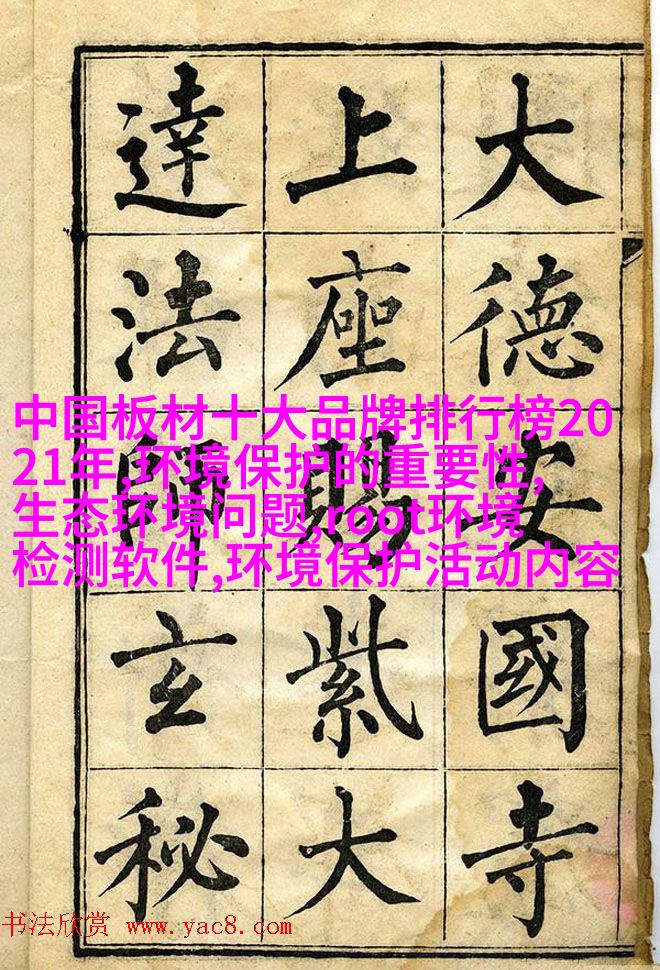 大德安國寺
上座賜紫大
達法師玄秘
中国板材十大品牌排行榜20
21年,环境保护的重要性,
生态环境问题,root环境
检测软件,环境保护活动内容
书法欣赏 www.yac8.com